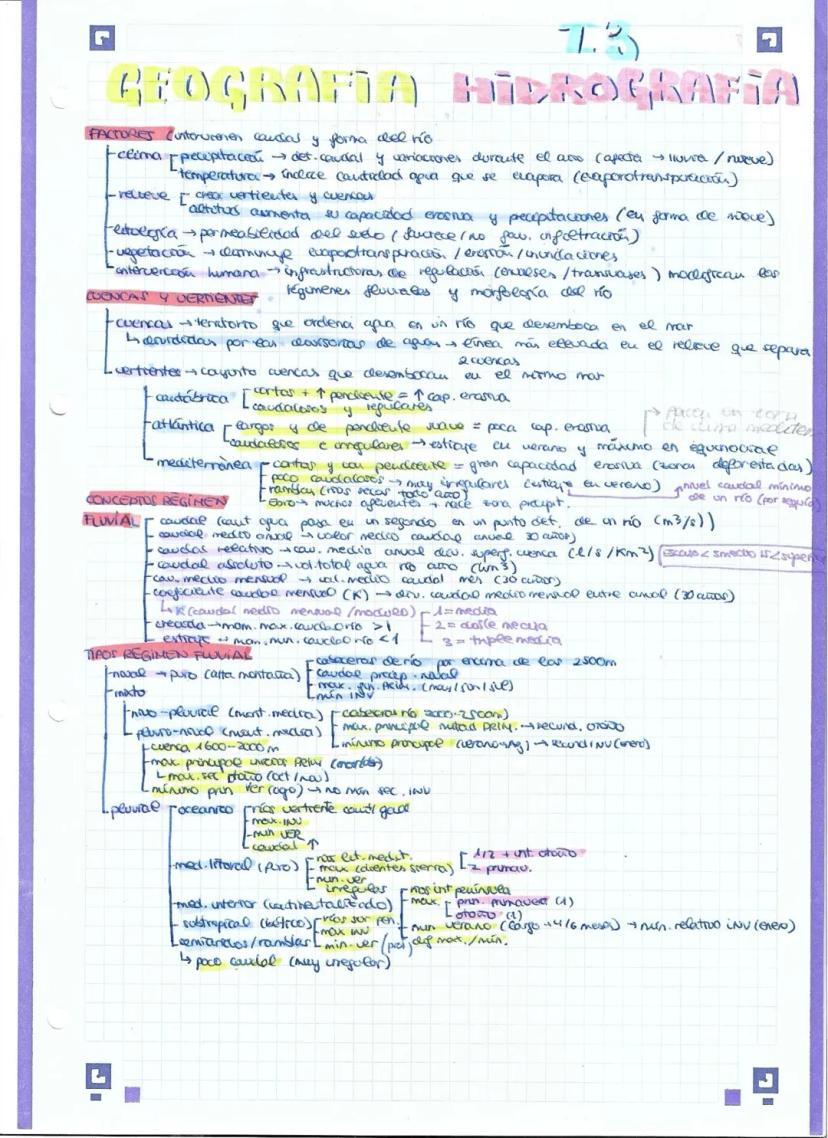 T.3
GEOGRAFÍA HIDROGRAFÍA
FACTORES (intervienen caudal y forma del río
clima precipitación → det. caudal y variaciones durante el año (afecta → lluvia / nieve)
temperatura → índice cantidad agua que se evapora (evapotranspiración)
relieve crea vertientes y cuencas
altitud aumenta su capacidad erosiva y precipitaciones (en forma de nieve)
litología → permeabilidad del suelo (favorece/no fav. infiltración)
vegetación → disminuye evapotranspiración / erosión / inundaciones
intervención humana → infraestructuras de regulación (embalses / transvases) modifican los
regímenes fluviales y morfología del río
CUENCAS Y VERTIENTES
cuencas → territorio que ordena agua en un río que desemboca en el mar
↳ divididas por las divisorias de aguas → línea más elevada en el relieve que separa
2 cuencas
vertientes → conjunto cuencas que desembocan en el mismo mar
cantábrica cortos + ↑ pendiente = ↑ cap. erosiva
caudalosos y regulares
atlántica largos y de pendiente suave = poca cap. erosiva
caudalosos e irregulares → estiaje en verano y máximo en equinoccial
mediterránea cortos y con pendiente = gran capacidad erosiva (zonas deforestadas)
poco caudalosos → muy irregulares (estiaje en verano)
nivel caudal mínimo
de un río (por sequía)
ramblas (ríos secos todo año)
Ebro → muchos afluentes → nace zona precipit.
CONCEPTOS RÉGIMEN
FLUVIAL caudal (cant agua pasa en un segundo en un punto det. de un río (m3/s))
caudal medio anual → valor medio caudal anual 30 años)
caudal relativo → cau. medio anual div. superf. cuenca (l/s/Km2)
caudal absoluto → vol. total agua río año (hm3)
cau. medio mensual → val. medio caudal mes (30 años)
coeficiente caudal mensual (K) → div. caudal medio mensual entre anual (30 años)
↳ K (caudal medio mensual / módulo) 1 = media
crecida → mom. max. caudal río > 1 2 = doble media
estiaje → mom. min. caudal río < 1 3 = triple media
TIPOS RÉGIMEN FLUVIAL
nival → puro (alta montaña) cabeceras de río por encima de los 2500m
caudal precip. nival
max. fin. PRIM. (may/jun/jul)
min INV
mixto
nivo-pluvial (mont. media) cabeceras río 2000-2500m)
max. principal mitad PRIM. → secund. otoño
mínimo principal → secund INV (enero)
pluvio-nival (mont. media)
cuenca 1600-2000 m
max. principal inicios PRIM (marzo)
↳ max. sec otoño (oct/nov)
mínimo prin ver (ago) → no mín sec. INV
pluvial oceánico ríos vertiente cant/gal
max. INV
min VER
caudal ↑
med. litoral (puro) ríos lit. medit.
max 1/2 + int. otoño
2 primav.
min. ver
irregulares
med. interior (continentalizado) ríos int península
max. prin. primavera (1)
otoño (1)
min verano (largo → 4/6 meses) → mín. relativo INV (enero)
subtropical (bético) ríos sur pen.
max INV
min. ver
dif max./mín.
semiáridos/ramblas
↳ poco caudal (muy irregular)